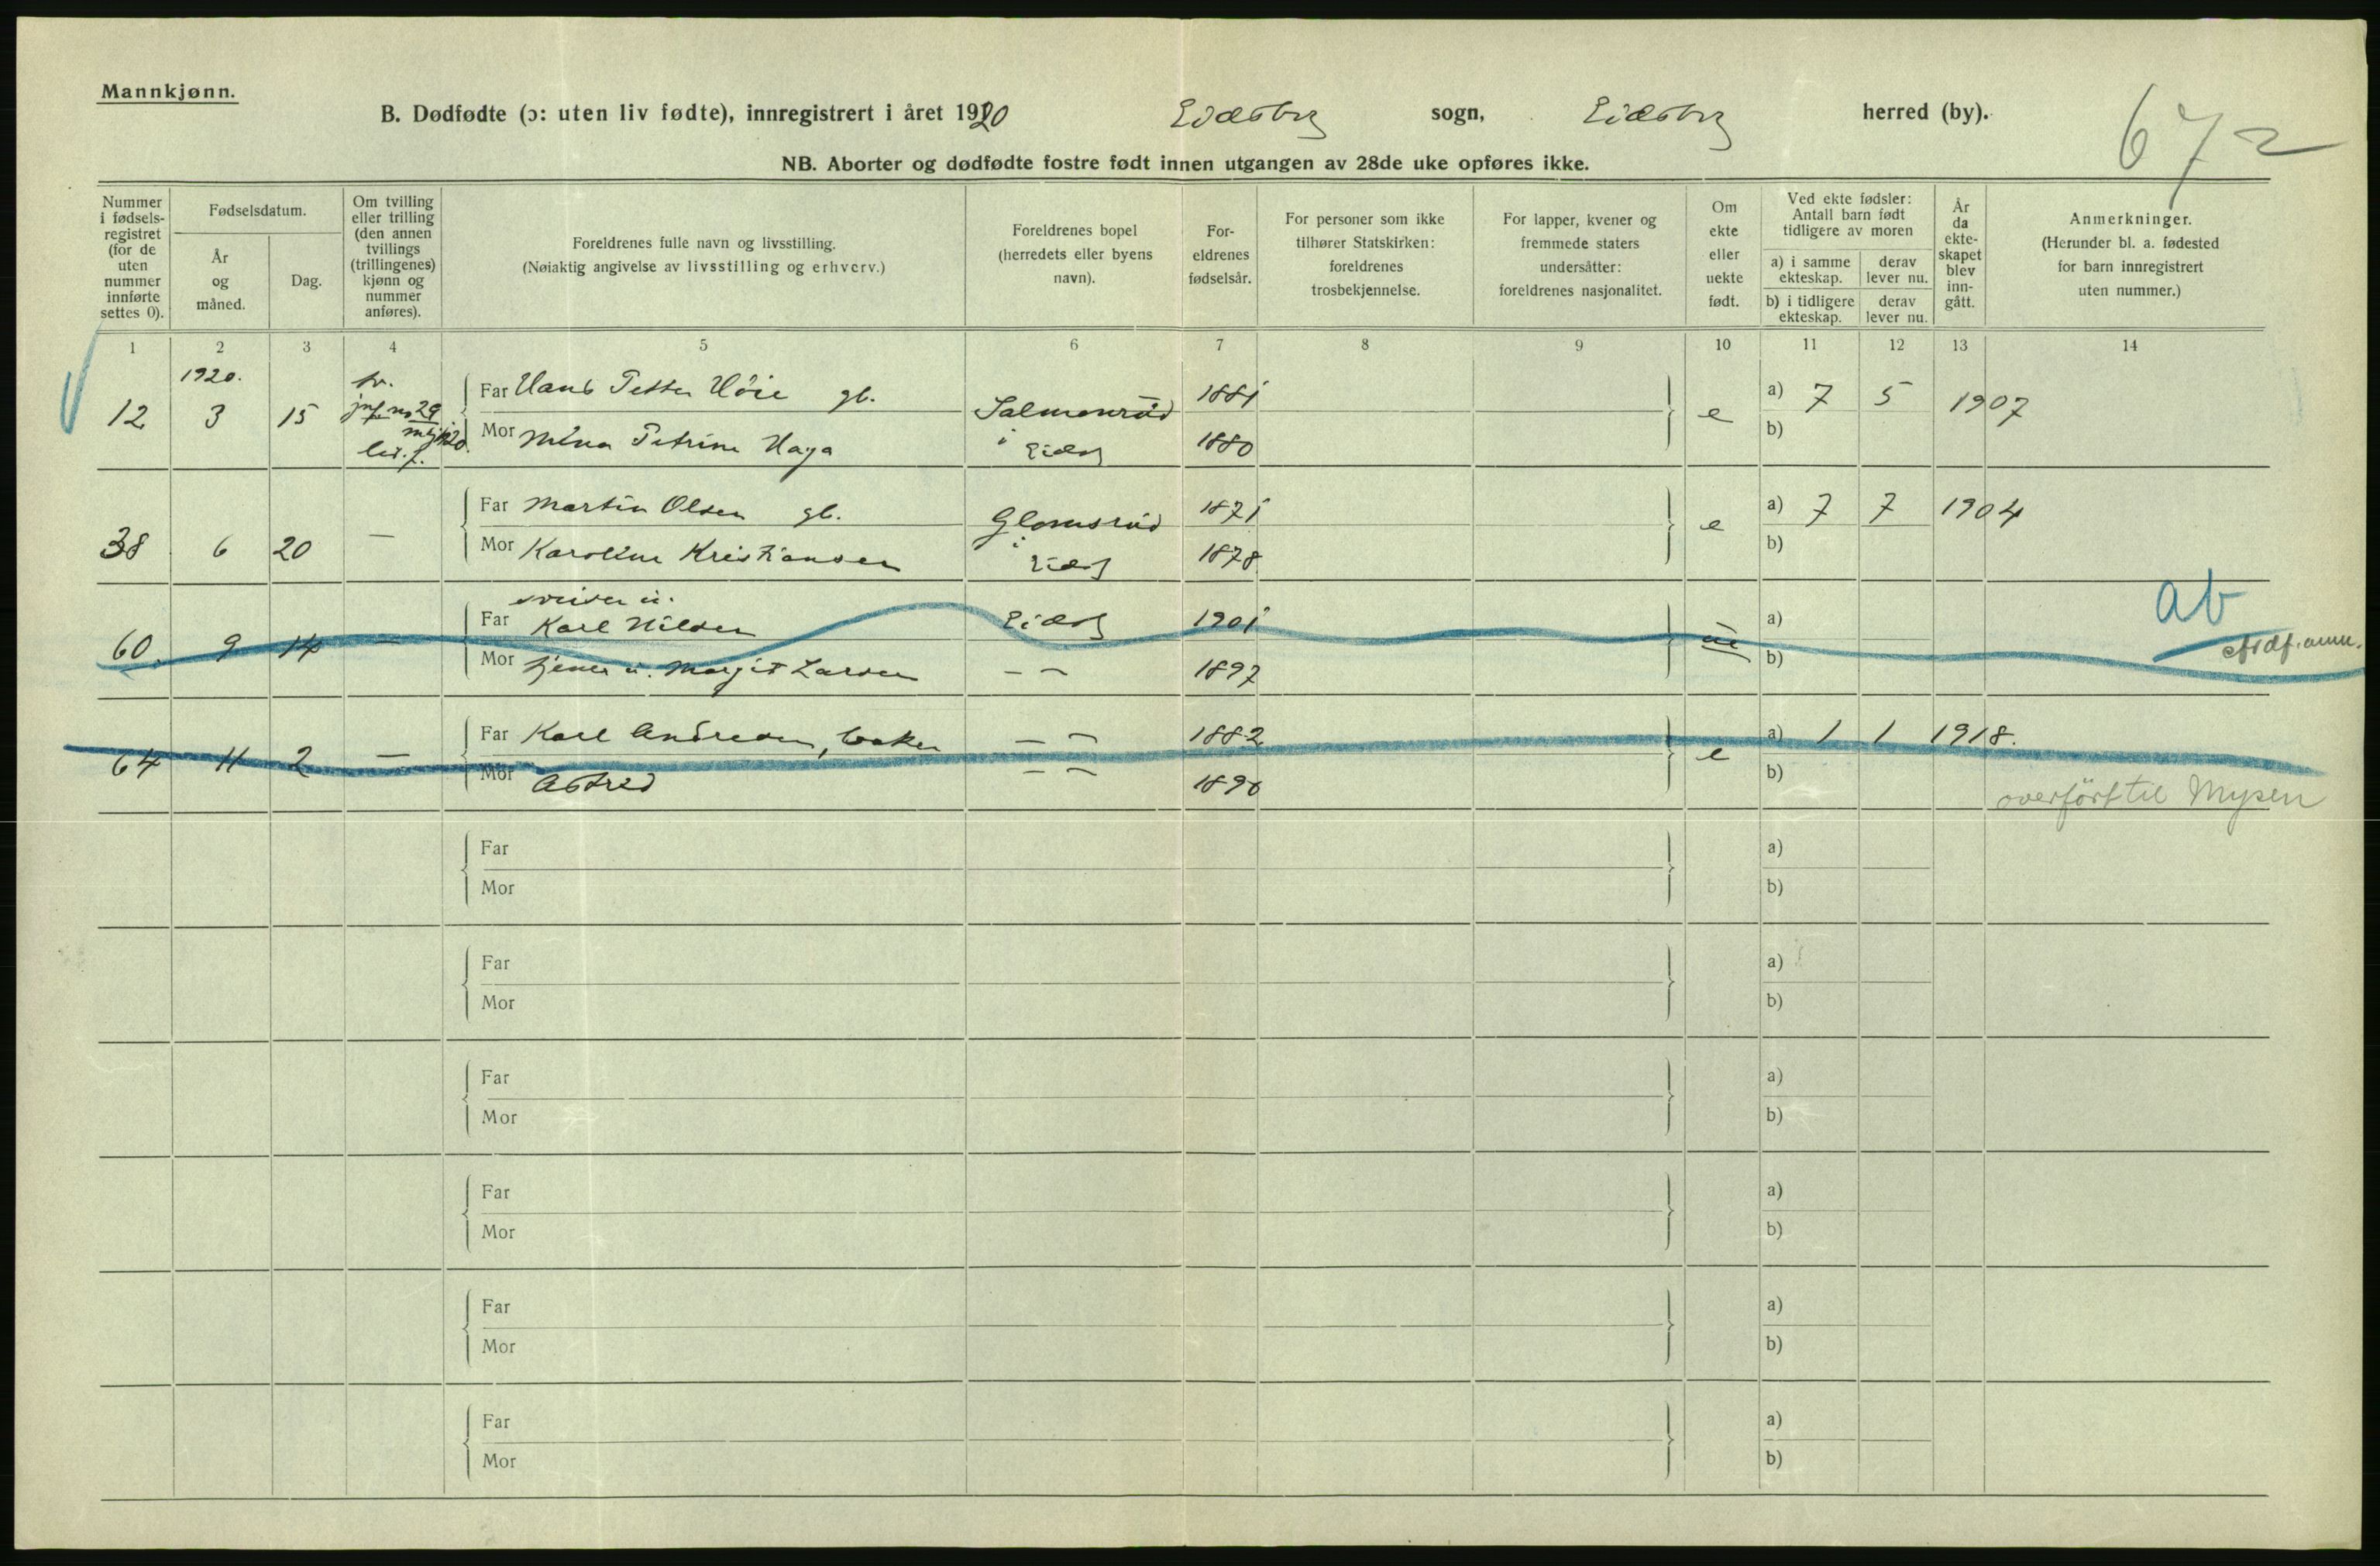 Mannkjønn.
B. Dødfødte (ɔ: uten liv fødte), innregistrert i året 1920 Eidsberg sogn, Eidsberg herred (by).
672
NB. Aborter og dødfødte fostre født innen utgangen av 28de uke opføres ikke.
Nummer i fødsels-registret (for de uten nummer innførte settes 0).
Fødselsdatum.
År og måned.
Dag.
Om tvilling eller trilling (den annen tvillings (trillingenes) kjønn og nummer anføres).
Foreldrenes fulle navn og livsstilling.
(Nøiaktig angivelse av livsstilling og erhverv.)
Foreldrenes bopel (herredets eller byens navn).
For-eldrenes fødselsår.
For personer som ikke tilhører Statskirken: foreldrenes trosbekjennelse.
For lapper, kvener og fremmede staters undersåtter: foreldrenes nasjonalitet.
Om ekte eller uekte født.
Ved ekte fødsler: Antall barn født tidligere av moren
a) i samme ekteskap. derav lever nu.
b) i tidligere ekteskap. derav lever nu.
År da ekte-skapet blev inn-gått.
Anmerkninger.
(Herunder bl. a. fødested for barn innregistrert uten nummer.)
1 2 3 4 5 6 7 8 9 10 11 12 13 14
1920. tv.
12 3 15 jnf. no 29
lev. f.
Far Hans Petter Höie gb. 1881
Mor Mina Petrine Haga 1880
Salmonrud i Eidsb
e a) 7 5 1907
b)
38 6 20 —
Far Martin Olsen gb. Glomsrud 1871
Mor Karoline Kristiansen i Eidsb 1878
e a) 7 7 1904
b)
ab
60. 9 14 —
sveiser u.
Far Karl Nilsen Eidsb 1901
Mor tjener u. Margit Larsen — — 1897
ue a)
b)
64 11 2 —
Far Karl Andresen, baker — — 1882
Mor Astrid — — 1890
e a) 1 1 1918.
b)
overført til Mysen
Far a)
Mor b)
Far a)
Mor b)
Far a)
Mor b)
Far a)
Mor b)
Far a)
Mor b)
Far a)
Mor b)